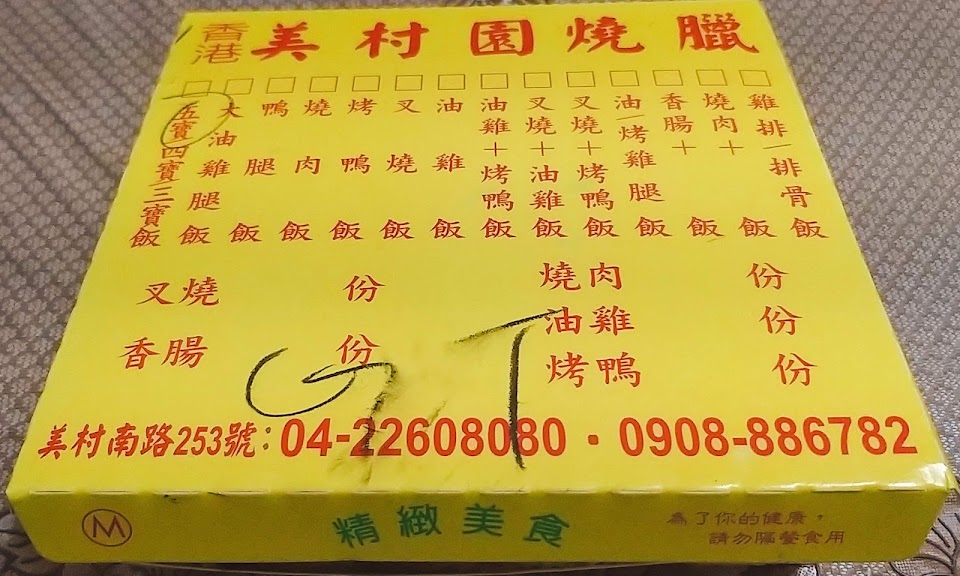 香港美村園燒臘
五寶四寶三寶飯
大油雞腿飯
鴨腿飯
燒肉飯
烤鴨飯
叉燒飯
油雞飯
油雞+烤鴨飯
叉燒+油雞飯
叉燒+烤鴨飯
油|烤雞腿飯
香腸+飯
燒肉+飯
雞排|排骨飯
叉燒 份
香腸 份
燒肉 份
油雞 份
烤鴨 份
美村南路253號:04-22608080·0908-886782
M
精緻美食
為了你的健康,
請勿隔餐食用